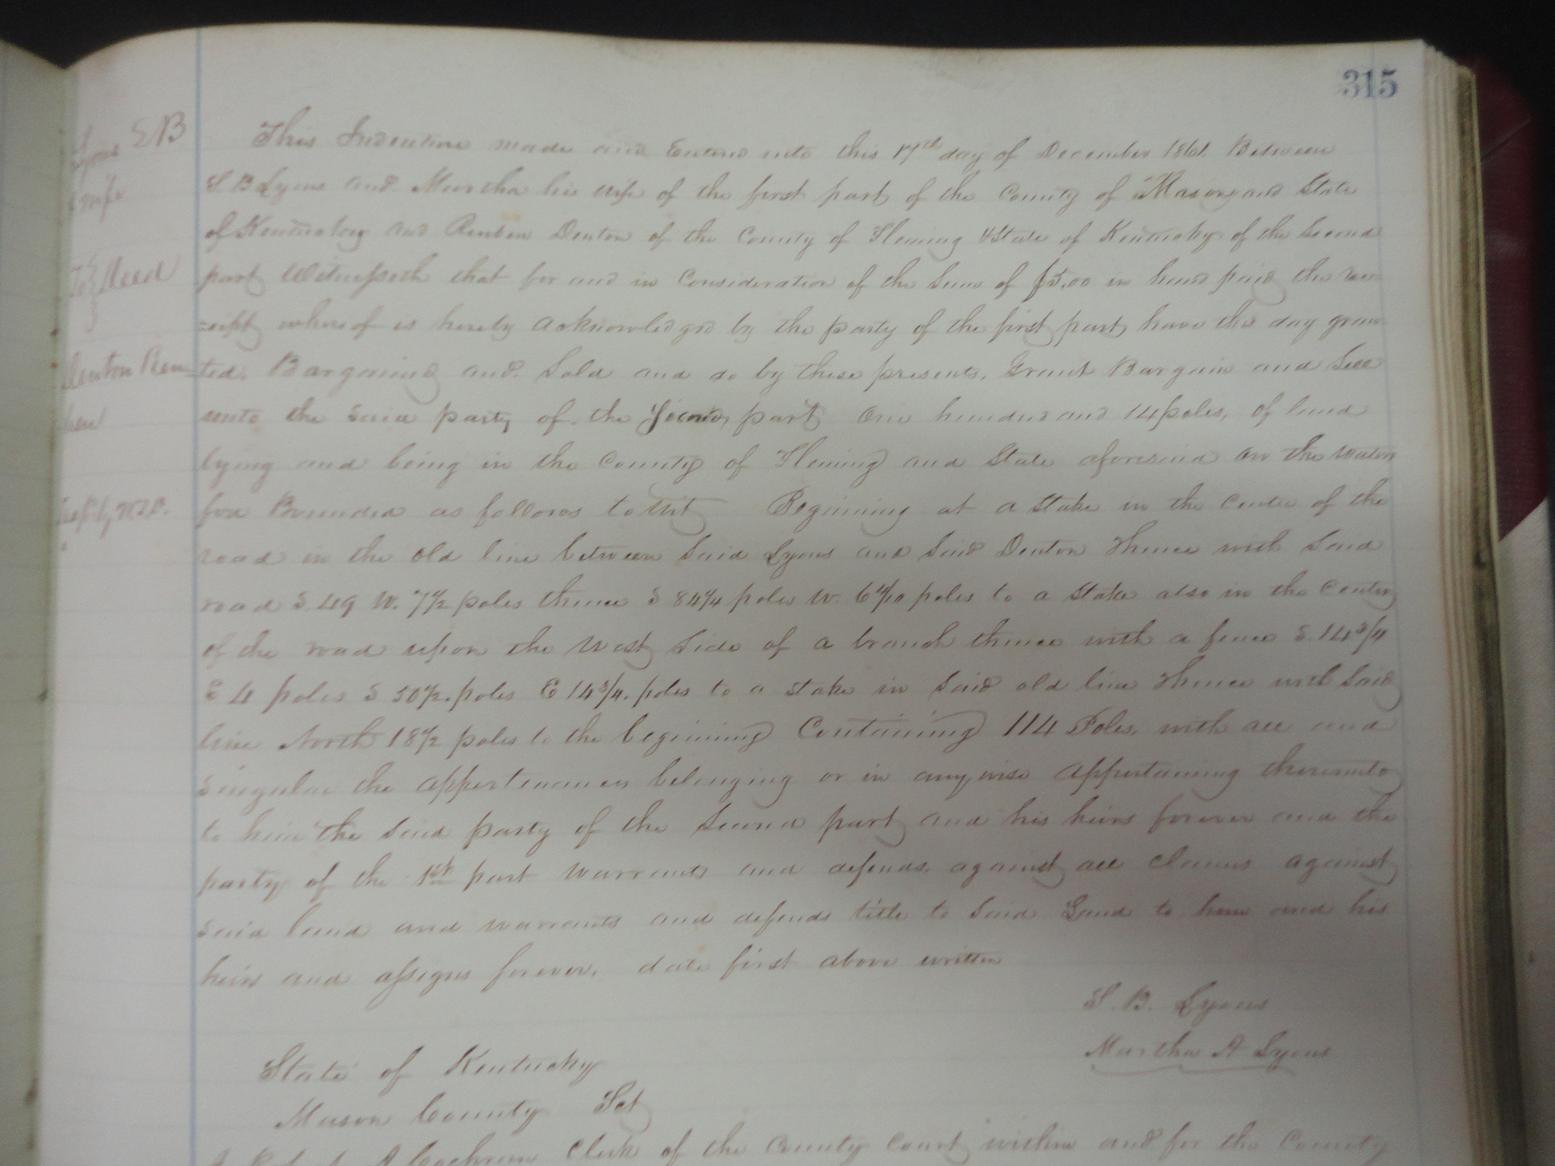 315
Lyons S B
& wife
To } Deed
Denton Reu
ben
This Indenture made and Entered into this 17th day of December 1861. Between
S. B Lyons and Martha his wife of the first part of the County of Mason and State
of Kentucky and Reuben Denton of the County of Fleming & State of Kentucky of the Second
part Witnesseth that for and in Consideration of the Sum of $5.00 in hand paid the re
=ceipt whereof is hereby acknowledged by the party of the first part, have this day gran
ted. Bargained and. Sold and do by these presents. Grant Bargain and Sell
unto the Said party of the Second part One hundred and 14 poles, of land
lying and being in the County of Fleming and State aforesaid on the waters
for Bounded as follows to Wit Begining at a Stake in the Center of the
road in the old line between Said Lyons and Said Denton Thence with Said
road S. 49 W. 7½ poles thence S 84¼ poles W. 6 poles to a Stake also in the Center
of the road upon the West Side of a branch thence with a fence S. 14¾
E 4 poles S 50½. poles E 14¾. poles to a Stake in Said old line Thence with Said
line North 18½ poles to the begining Containing 114 Poles. with all and
Singular the appertenances belonging or in anywise appertaining thereunto
to him the Said party of the Second part and his heirs forever and the
party of the 1st part Warrants and defends against all claims against
Said land and warrants and defends title to Said Land to him and his
heirs and assigns forever. date first above written
S. B. Lyons
Martha A Lyons
State of Kentucky
Mason County Sct
Cochran Clerk of the County Court within and for the County